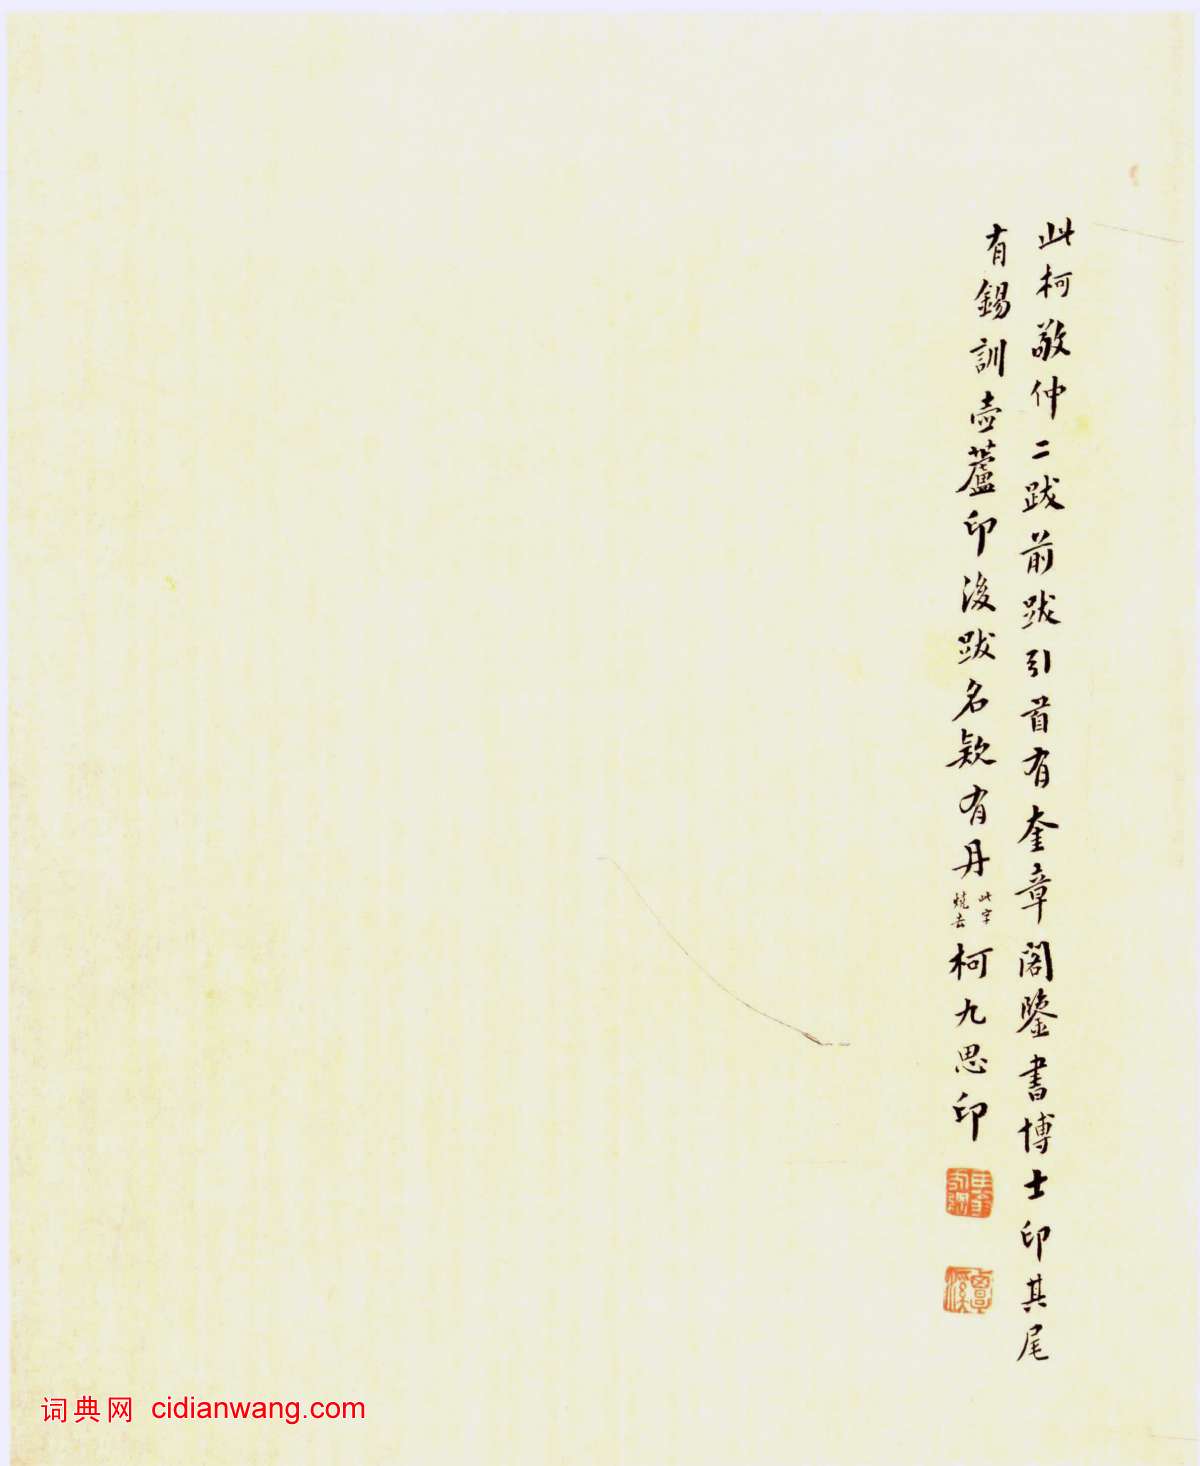 此柯敬仲二跋前跋引首有奎章閣鑒書博士印其尾
有錫訓壺蘆印後跋名款有丹此字燒去柯九思印
覃溪
词典网 cidianwang.com